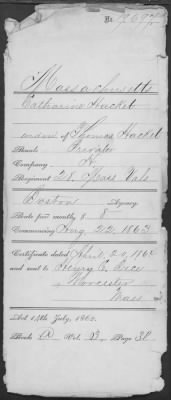 No.
Massachusetts
Catharine Hacket
widow of Thomas Hacket
Rank Private
Company H.
Regiment 28. Mass Vols
Boston Agency
Rate per month $ 8
Commencing Aug. 22, 1863
Certificate dated April 20, 1864
and sent to
Worcester
Mass
Act 14th July, 1862.
Book A Vol. Page 38